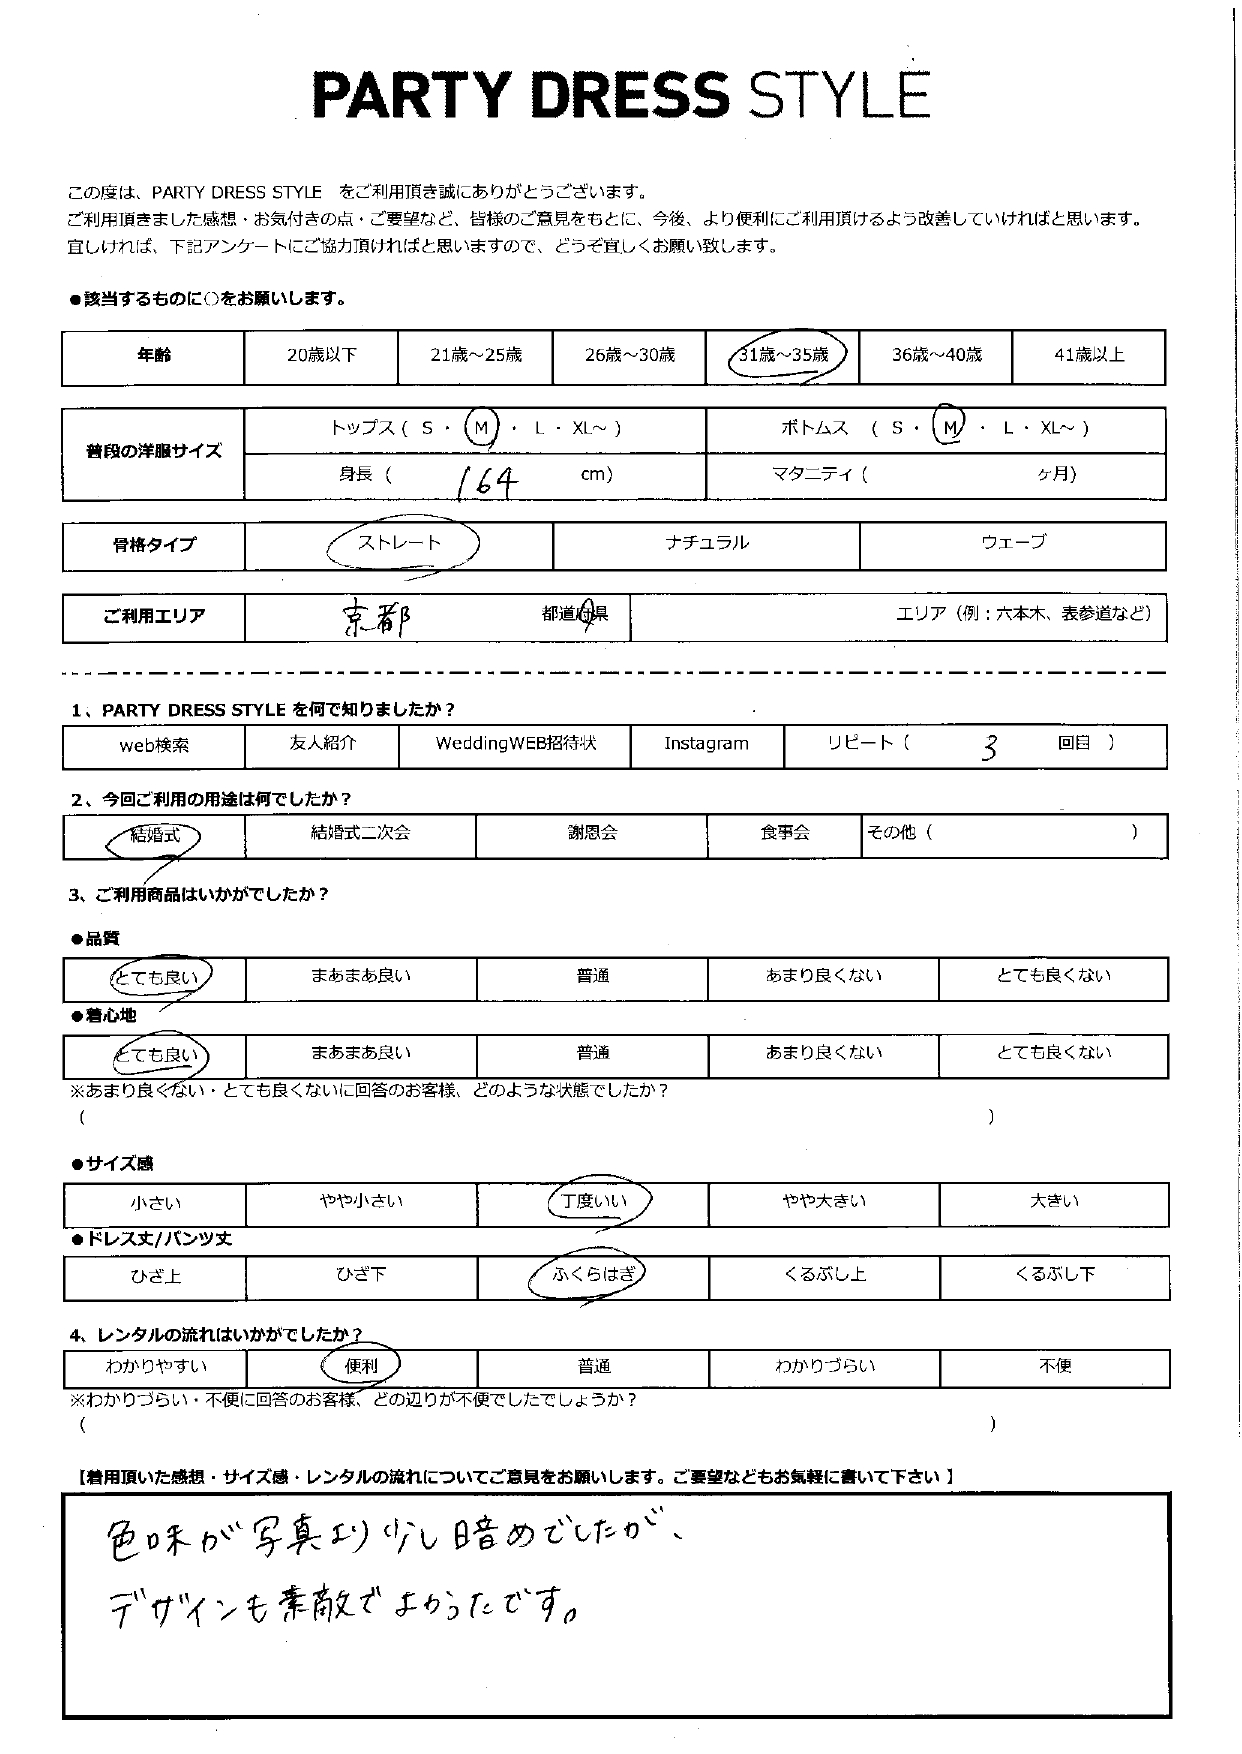 PARTY DRESS STYLE
この度は、PARTY DRESS STYLE をご利用頂き誠にありがとうございます。
ご利用頂きました感想・お気付きの点・ご要望など、皆様のご意見をもとに、今後、より便利にご利用頂けるよう改善していければと思います。
宜しければ、下記アンケートにご協力頂ければと思いますので、どうぞ宜しくお願い致します。
●該当するものに○をお願いします。
年齢 20歳以下 21歳～25歳 26歳～30歳 31歳～35歳 36歳～40歳 41歳以上
普段の洋服サイズ
トップス ( S ・ M ・ L ・ XL～ ) ボトムス ( S ・ M ・ L ・ XL～ )
身長 ( 164 cm) マタニティ ( ヶ月)
骨格タイプ ストレート ナチュラル ウェーブ
ご利用エリア 京都 都道府県 エリア（例：六本木、表参道など）
1、PARTY DRESS STYLE を何で知りましたか？
web検索 友人紹介 WeddingWEB招待状 Instagram リピート ( 3 回目 )
2、今回ご利用の用途は何でしたか？
結婚式 結婚式二次会 謝恩会 食事会 その他 ( )
3、ご利用商品はいかがでしたか？
●品質
とても良い まあまあ良い 普通 あまり良くない とても良くない
●着心地
とても良い まあまあ良い 普通 あまり良くない とても良くない
※あまり良くない・とても良くないに回答のお客様、どのような状態でしたか？
( )
●サイズ感
小さい やや小さい 丁度いい やや大きい 大きい
●ドレス丈/パンツ丈
ひざ上 ひざ下 ふくらはぎ くるぶし上 くるぶし下
4、レンタルの流れはいかがでしたか？
わかりやすい 便利 普通 わかりづらい 不便
※わかりづらい・不便に回答のお客様、どの辺りが不便でしたでしょうか？
( )
【着用頂いた感想・サイズ感・レンタルの流れについてご意見をお願いします。ご要望などもお気軽に書いて下さい】
色味が写真より少し暗めでしたが、
デザインも素敵でよかったです。